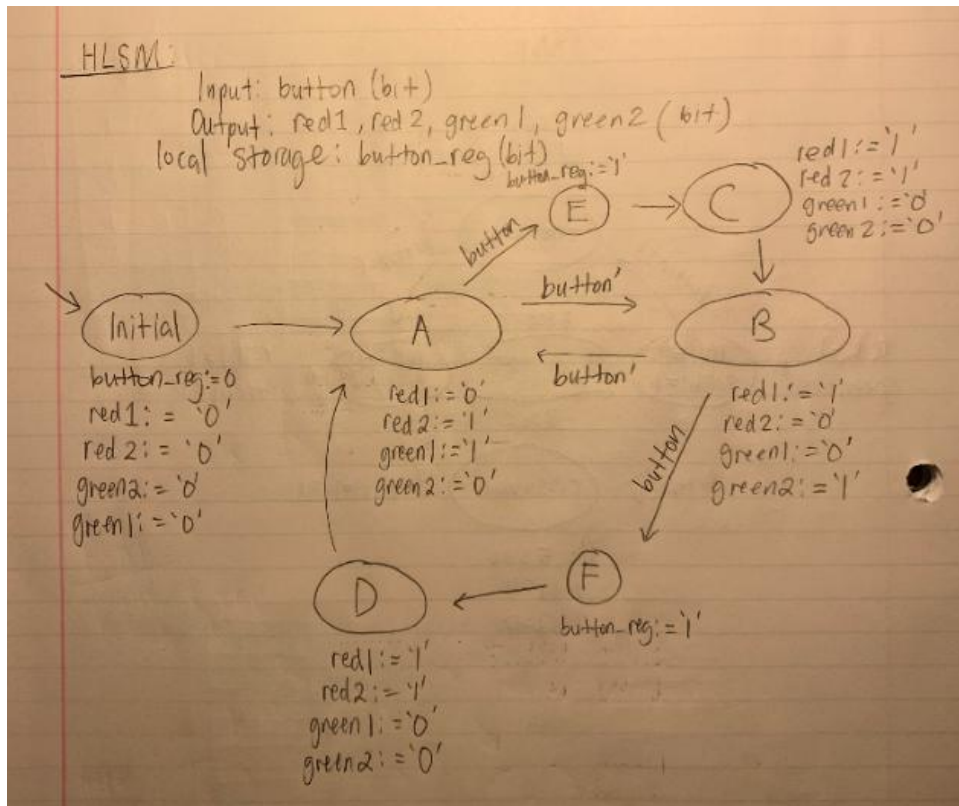 HLSM:
Input: button (bit)
Output: red1, red2, green1, green2 (bit)
local storage: button_reg (bit)
button_reg:='1'
E
C
red1:='1'
red2:='1'
green1:='0'
green2:='0'
button
Initial
A
button'
button'
B
button_reg:=0
red1:='0'
red2:='0'
green2:='0'
green1:='0'
red1:='0'
red2:='1'
green1:='1'
green2:='0'
red1:='1'
red2:='0'
green1:='0'
green2:='1'
button
D
F
button_reg:='1'
red1:='1'
red2:='1'
green1:='0'
green2:='0'